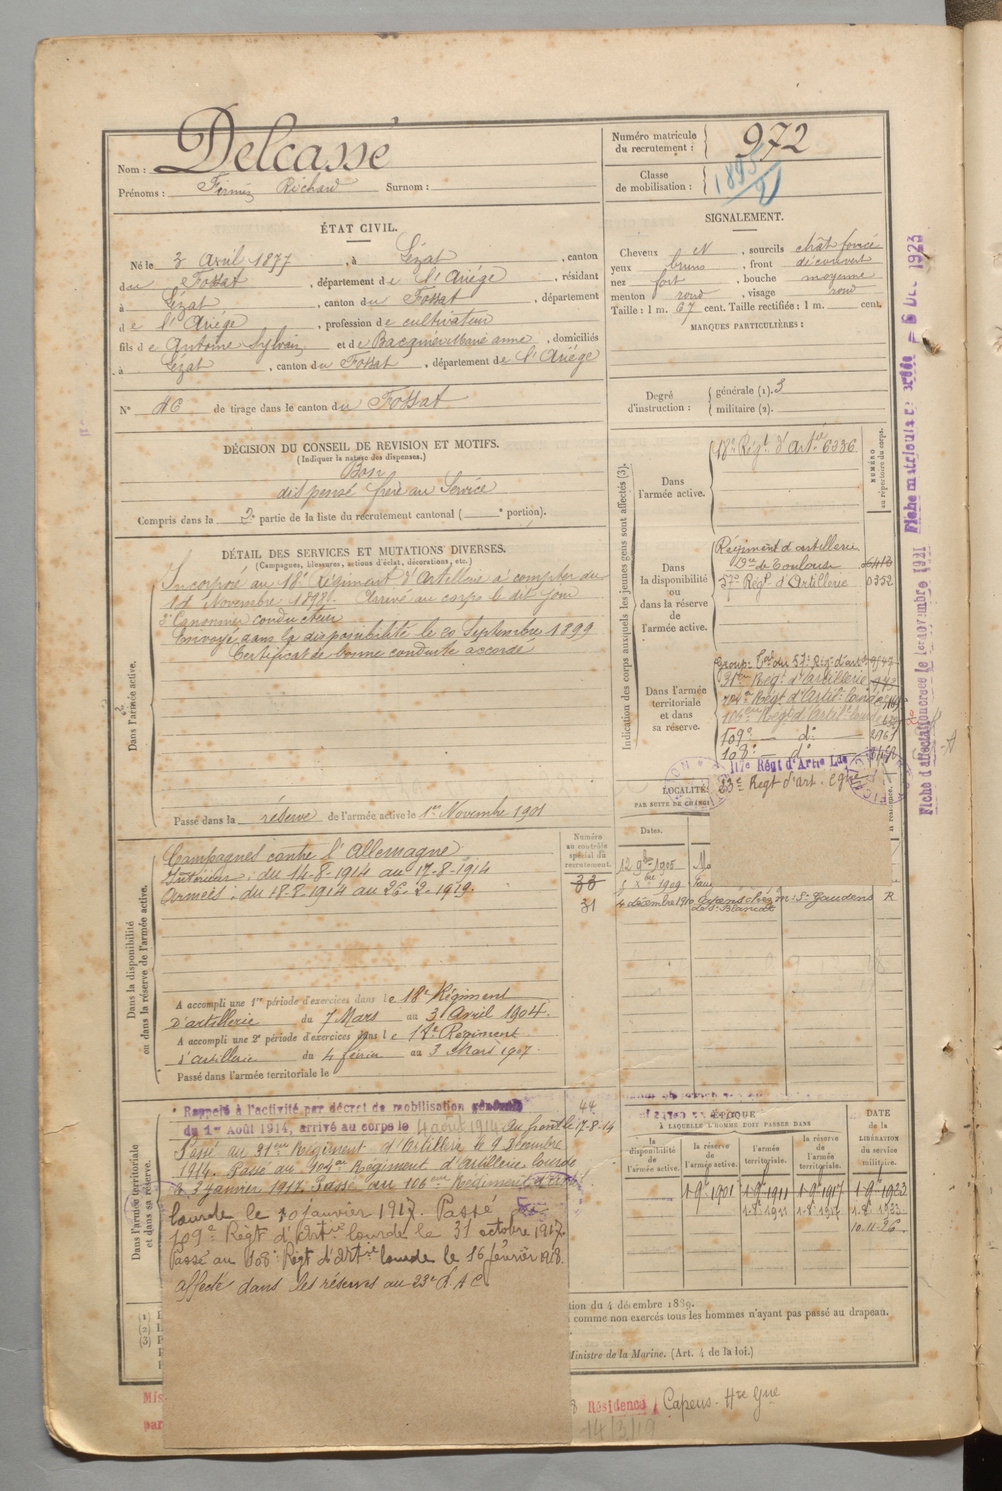 Nom : Delcassé
Prénoms : Firmin Richard Surnom :
Numéro matricule du recrutement : 972
Classe de mobilisation :
ÉTAT CIVIL.
Né le 3 Avril 1877, à Lézat, canton
du Fossat, département de l'Ariége, résidant
à Lézat, canton du Fossat, département
de l'Ariége, profession de cultivateur
fils de Antoine Sylvain et de Marie anne, domiciliés
à Lézat, canton du Fossat, département de l'Ariége
N° 46 de tirage dans le canton du Fossat
SIGNALEMENT.
Cheveux et, sourcils chât foncé
yeux bruns, front découvert
nez fort, bouche moyenne
menton rond, visage rond
Taille : 1 m. 67 cent. Taille rectifiée : 1 m. cent.
MARQUES PARTICULIÈRES :
Degré d'instruction : générale (1). 3
militaire (2).
DÉCISION DU CONSEIL DE REVISION ET MOTIFS.
(Indiquer la nature des dispenses.)
Bon
dispensé frère au Service
Compris dans la 2e partie de la liste du recrutement cantonal ( e portion).
DÉTAIL DES SERVICES ET MUTATIONS DIVERSES.
(Campagnes, blessures, actions d'éclat, décorations, etc.)
Dans l'armée active.
Incorporé au 18e Régiment d'Artillerie à compter du
1er Novembre 1898. Arrivé au corps le dit jour
2e Canonnier conducteur
Envoyé dans la disponibilité le 20 Septembre 1899
Certificat de bonne conduite accordé
Passé dans la réserve de l'armée active le 1er Novembre 1901
Indication des corps auxquels les jeunes gens sont affectés (3).
NUMÉRO au répertoire du corps.
Dans l'armée active.
18e Régt d'Artie 6336
Dans la disponibilité ou dans la réserve de l'armée active.
Régiment d'artillerie
de Toulouse
57e Régt d'Artillerie 0352
Dans l'armée territoriale et dans sa réserve.
Group. du 57e Rég. d'art
31eme Régt d'Artillerie
104e Régt d'Artil. lourde
106eme Régt d'Artil. lourde
109e — do — 2961
108e — do —
117e Régt d'Artie Lde
23e Régt d'art.
LOCALITÉS
PAR SUITE DE CHANG
Dates.
12 9bre 1905
5 Xbre 1909
4 décembre 1910 St Gaudens R
Numéro au contrôle spécial du recrutement.
33
31
Dans la disponibilité ou dans la réserve de l'armée active.
Campagnes contre l'Allemagne
Intérieur : du 14-8-1914 au 17-8-1914
Armées : du 18-8-1914 au 26-2-1919.
A accompli une 1re période d'exercices dans le 18e Régiment
D'artillerie du 7 Mars au 3 Avril 1904.
A accompli une 2e période d'exercices dans le 18e Régiment
d'artillerie du 4 février au 3 Mars 1907.
Passé dans l'armée territoriale le
Dans l'armée territoriale et dans sa réserve.
44
Rappelé à l'activité par décret de mobilisation générale
du 1er Août 1914, arrivé au corps le 4 août 1914 au front le 17-8-14
Passé au 31eme Régiment d'Artillerie le 9 Décembre
1914. Passé au 104me Régiment d'Artillerie lourde
le 3 Janvier 1917. Passé au 106eme Régiment d'art
lourde le 10 janvier 1917. Passé
109e Régt d'Artie lourde le 31 octobre 1917.
Passé au 108e Régt d'Artie lourde le 16 février 1918.
affecté dans les réserves au 23e d'A C
ÉPOQUE
À LAQUELLE L'HOMME DOIT PASSER DANS
la disponibilité de l'armée active.
la réserve de l'armée active.
l'armée territoriale.
la réserve de l'armée territoriale.
DATE de la LIBÉRATION du service militaire.
1-9bre 1901 1-9bre 1911 1-9bre 1917 1-9bre 1923
10.11.26
tion du 4 décembre 1889.
comme non exercés tous les hommes n'ayant pas passé au drapeau.
Ministre de la Marine. (Art. 4 de la loi.)
Résidence Capens. Hte Gne
14/3/19
Fiche d'affectation créée le 1er novembre 1921 Fiche matricule créée = 6 DEC 1923